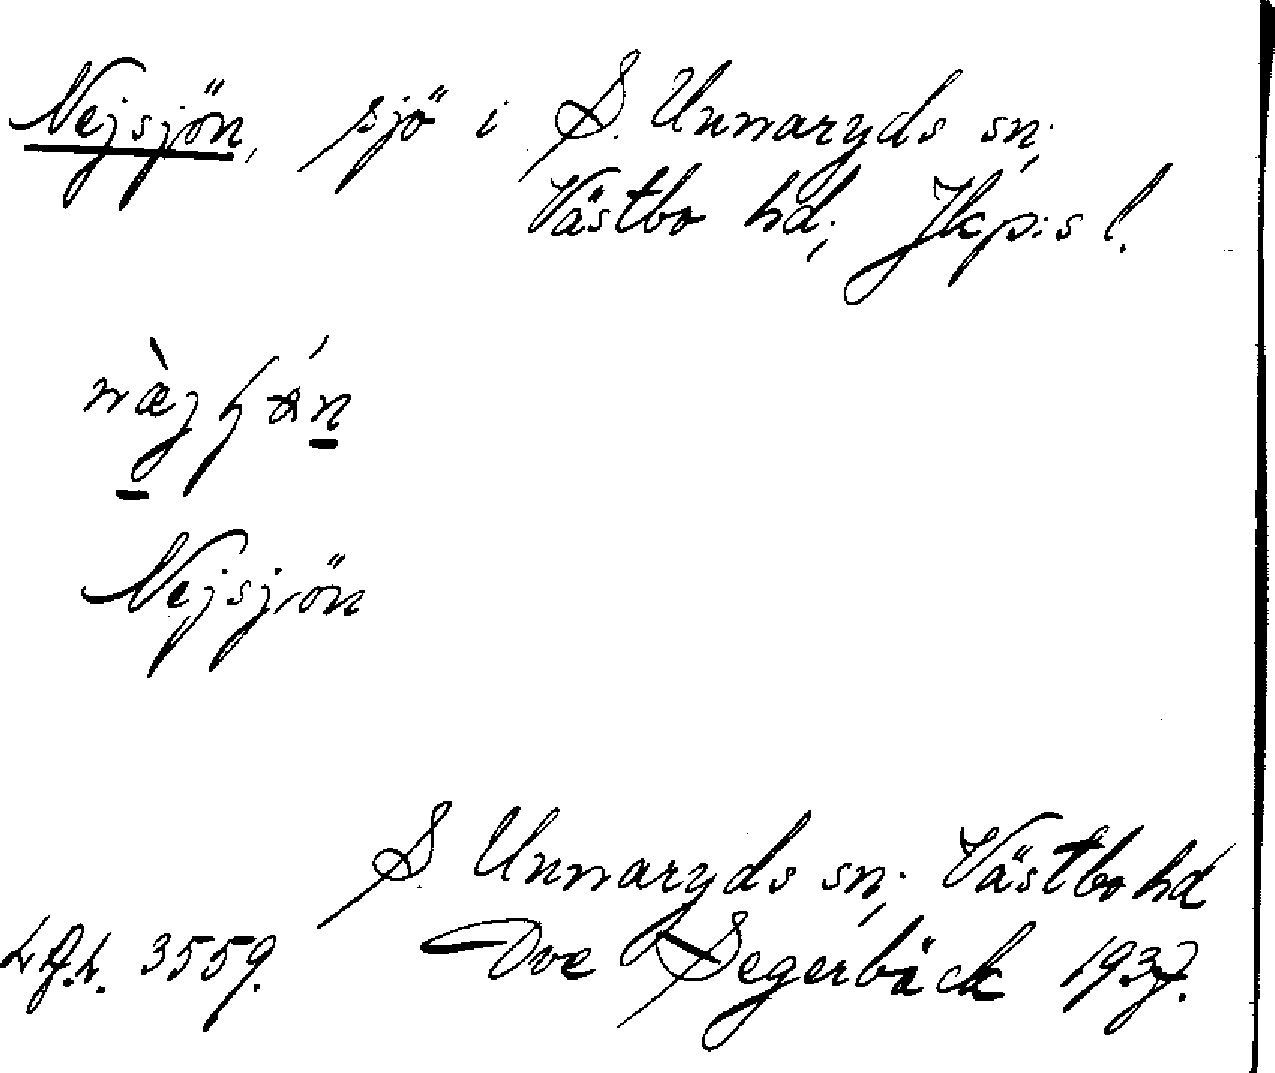 Nejsjön, sjö i S. Unnaryds sn;
Västbo hd; Jkp:s l.
Nejsjön
S Unnaryds sn; Västbo hd
3559. Ove Segerbäck 1937.